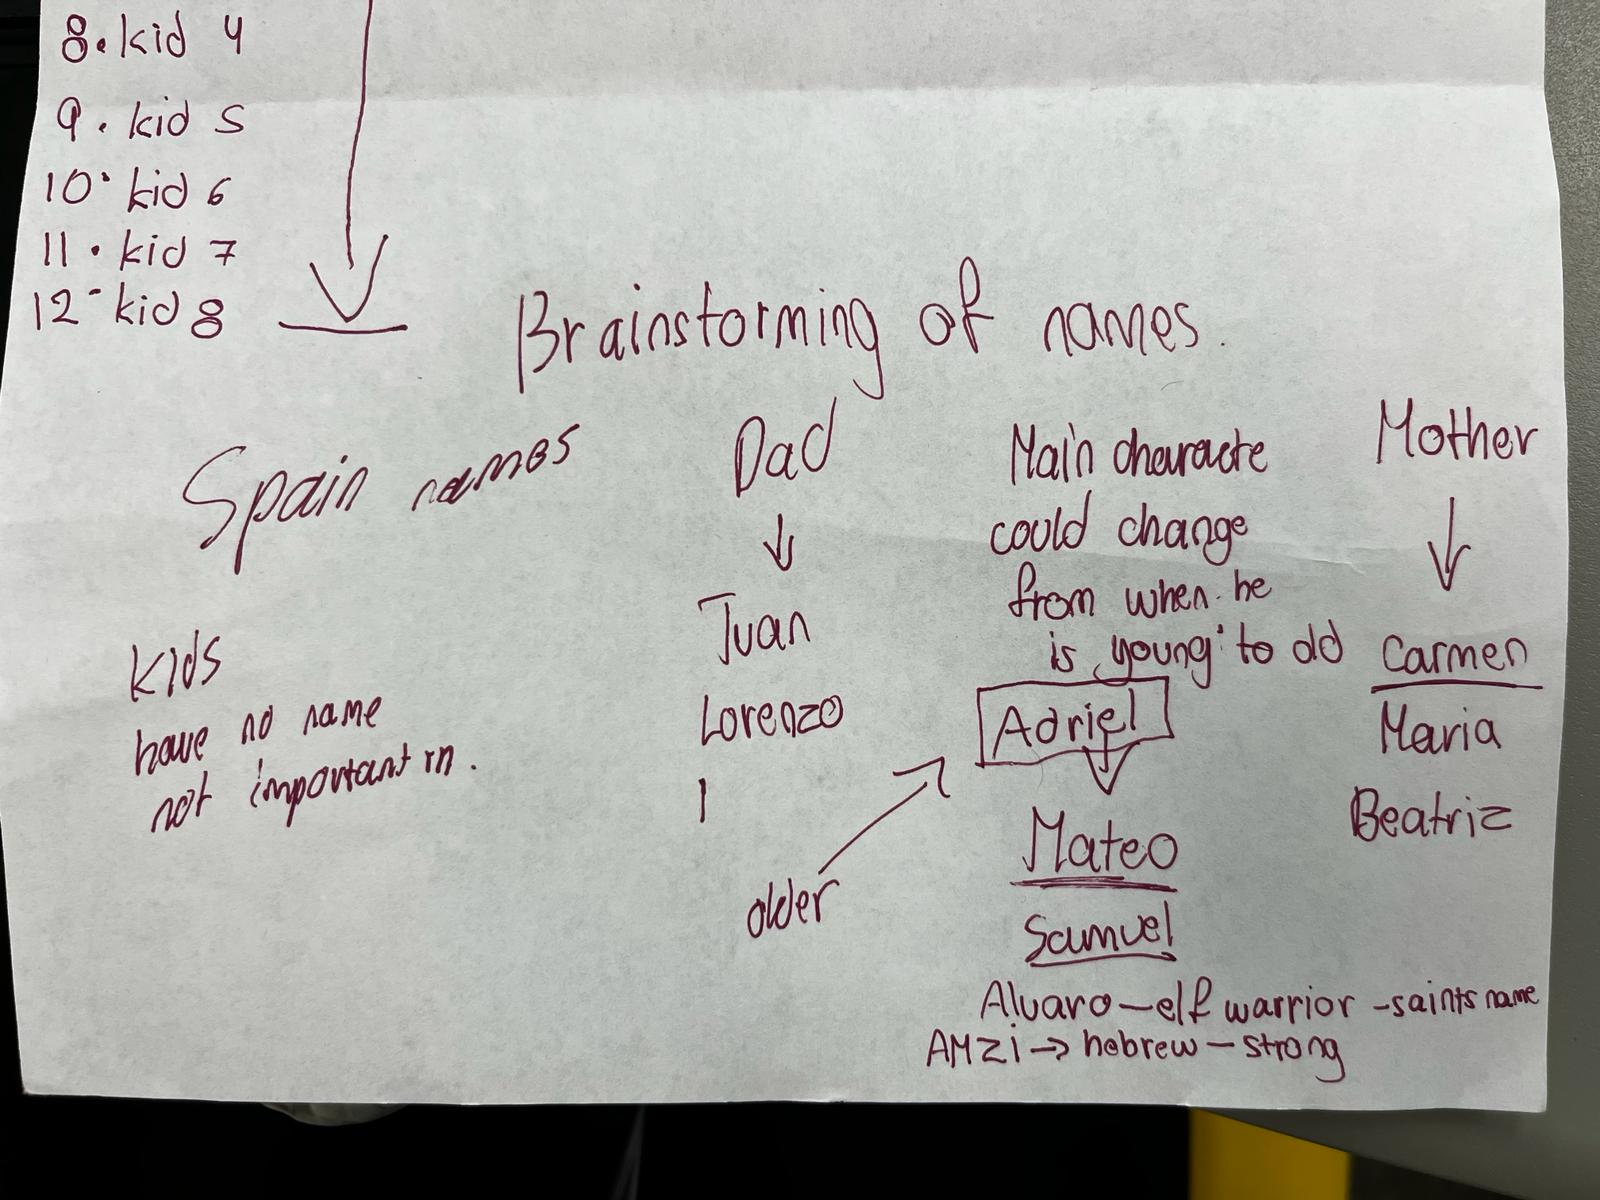 8. kid 4
9. kid 5
10. kid 6
11. kid 7
12- kid 8
Brainstorming of names.
Spain names
Kids
have no name
not important in.
Dad
Juan
Lorenzo
older
Main characte
could change
from when he
is young to old
Adriel
Mateo
Samuel
Alvaro-elf warrior-saints name
AMZi→hebrew-strong
Mother
Carmen
Maria
Beatriz